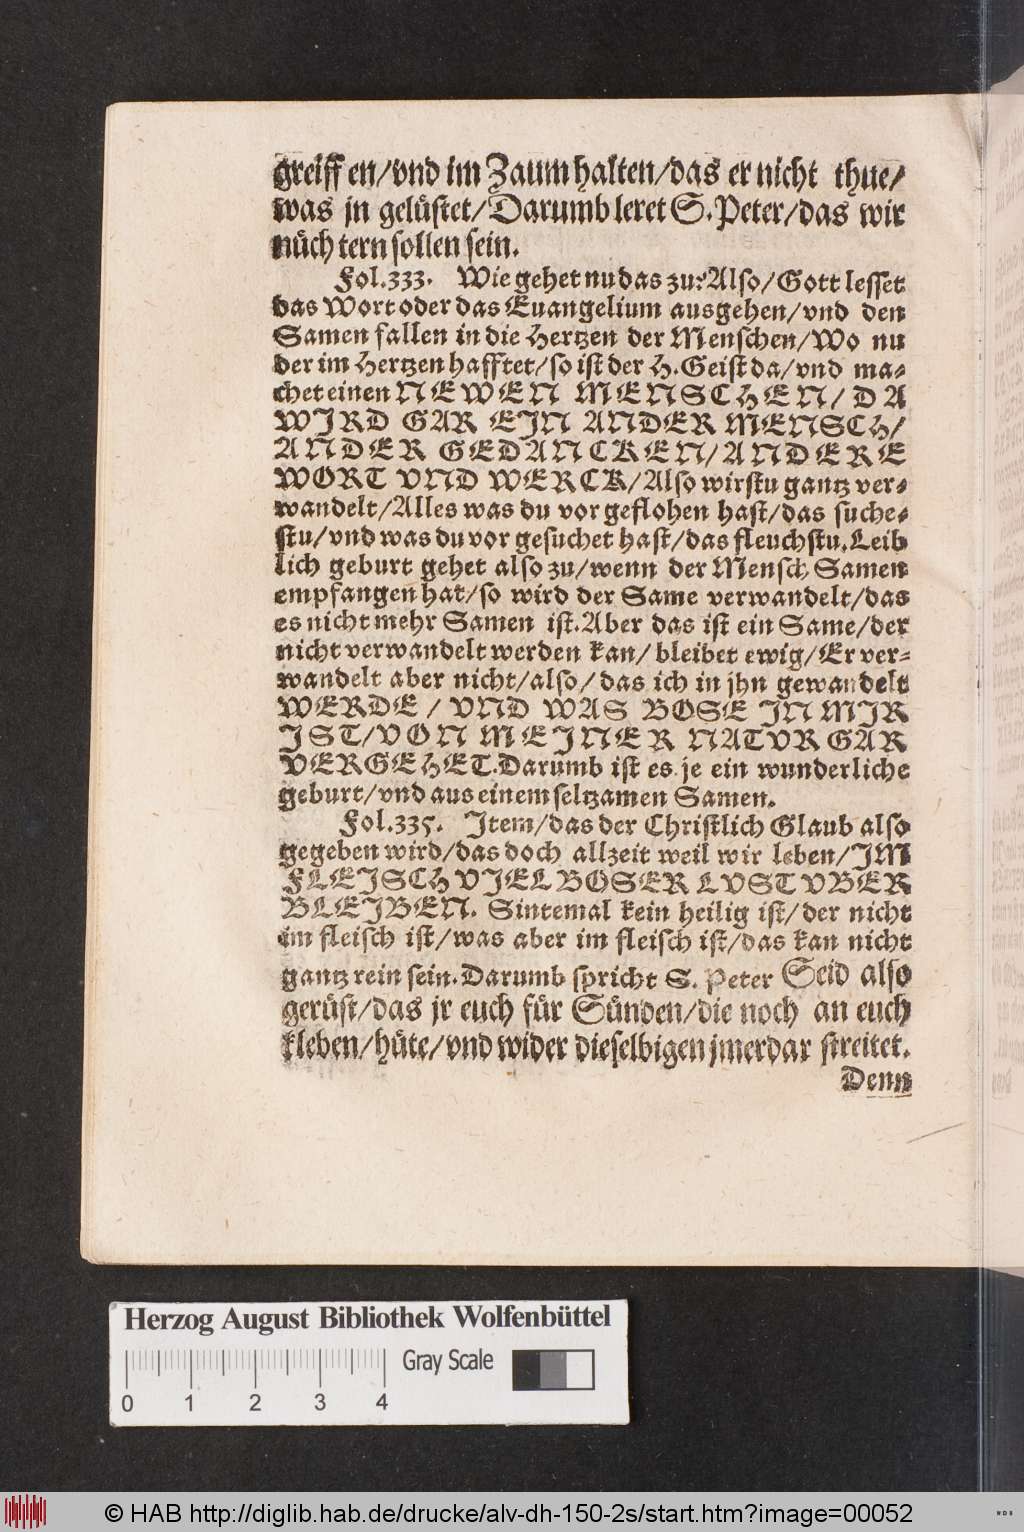 greiffen/vnd im Zaum halten/das er nicht thue/
was jn gelüstet/Darumb leret S. Peter/das wir
nüchtern sollen sein.
Fol. 333. Wie gehet nu das zu? Also/Gott lesset
das Wort oder das Euangelium ausgehen/vnd den
Samen fallen in die Hertzen der Menschen/Wo nu
der im Hertzen hafftet/so ist der H. Geist da/vnd ma-
chet einen NEWEN MENSCHEN/DA
WIRD GAR EIN ANDER MENSCH/
ANDER GEDANCKEN/ANDERE
WORT VND WERCK/Also wirstu gantz ver-
wandelt/Alles was du vor geflohen hast/das suche-
stu/vnd was du vor gesuchet hast/das fleuchstu. Leib
lich geburt gehet also zu/wenn der Mensch Samen
empfangen hat/so wird der Same verwandelt/das
es nicht mehr Samen ist. Aber das ist ein Same/der
nicht verwandelt werden kan/bleibet ewig/Er ver-
wandelt aber nicht/also/das ich in jhn gewandelt
WERDE/VND WAS BOSE IN MIR
IST/VON MEINER NATVR GAR
VERGEHET. Darumb ist es je ein wunderliche
geburt/vnd aus einem seltzamen Samen.
Fol. 335. Item/das der Christlich Glaub also
gegeben wird/das doch allzeit weil wir leben/IM
FLEISCH VIEL BOSER LVST VBER
BLEIBEN. Sintemal kein heilig ist/der nicht
im fleisch ist/was aber im fleisch ist/das kan nicht
gantz rein sein. Darumb spricht S. Peter Seid also
gerüst/das jr euch für Sünden/die noch an euch
kleben/hüte/vnd wider dieselbigen jmerdar streitet.
Denn
Herzog August Bibliothek Wolfenbüttel
Gray Scale
0 1 2 3 4
© HAB http://diglib.hab.de/drucke/alv-dh-150-2s/start.htm?image=00052